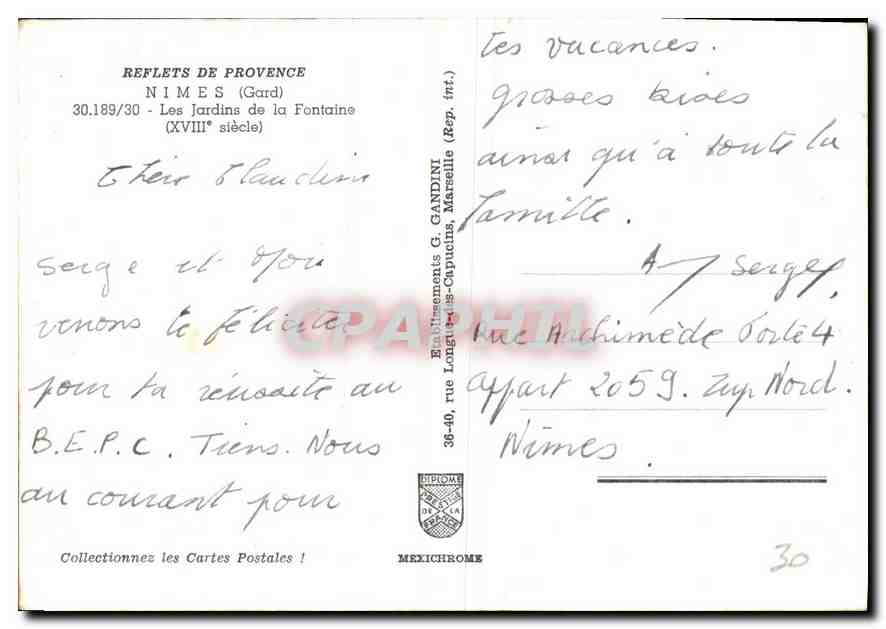 REFLETS DE PROVENCE
NIMES (Gard)
30.189/30 - Les Jardins de la Fontaine
(XVIIIe siècle)
Chère Claudine
Serge et Moi
venons te féliciter
pour ta réussite au
B.E.P.C. Tiens. Nous
au courant pour
Collectionnez les Cartes Postales !
Etablissements G. GANDINI
36-40, rue Longue-des-Capucins, Marseille (Rep. int.)
DIPLOME
PRESTIGE
DE LA
FRANCE
MEXICHROME
tes vacances.
grosses bises
ainsi qu'à toute la
famille.
Serge
Rue Archimède Porte 4
appart 2059. Zup Nord.
Nîmes.
30
CPAPHIL